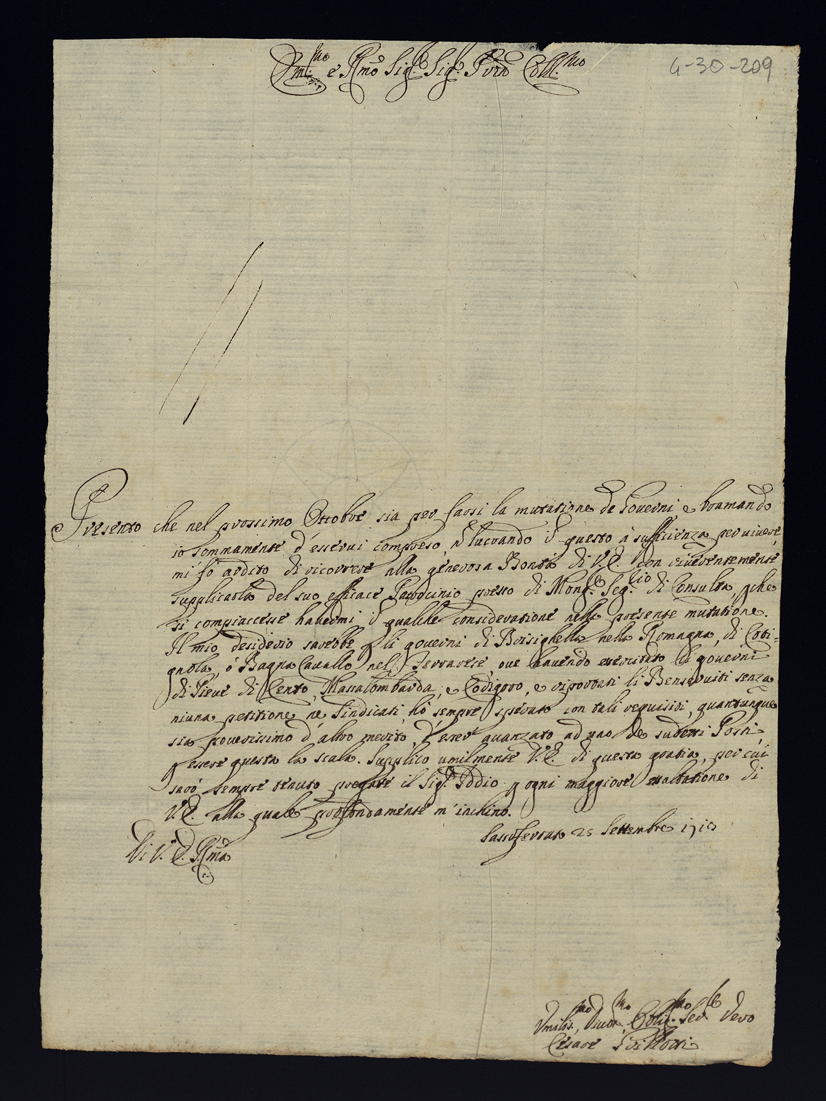 Em.mo e R.mo Sig.r Sig.r P.rone Coll.mo
4-30-209
Presento che nel prossimo Ottobre sia per farsi la mutatione de Governi e bramando
io sommamente d'esservi compreso, e trovando in questo à sufficienza per vivere,
mi fò ardito di ricorrere alla generosa Bontà di V.E. con riverentemente
supplicarla del suo efficace Patrocinio presso di Mons.r Seg.rio di Consulta, che
si compiacesse havermi in qualche consideratione nella presente mutatione.
Il mio desiderio sarebbe li governi di Brisighella nella Romagna, di Coti-
gnola, ò Bagna Cavallo nel Ferrarese ove havendo esercitato li governi
di Pieve di Cento, Massalombarda, e Codigoro, e riportati li Benserviti senza
niuna petitione ne Sindicati, hò sempre sperato con tali requisiti, quantunque
sia poverissimo d'altro merito d'esser avanzato ad uno de sudetti Posti,
p essere questa la scala. Supplico umilmente V.E. di questa gratia, per cui
sarò sempre tenuto pregare il Sig.r Iddio p ogni maggiore esaltatione di
V.E. alla quale profondamente m'inchino.
Sassoferrato 25 Settembre
Di V.E. R.ma
Umilis.mo Divot.mo Oblig.mo Ser.re Vero
Cesare